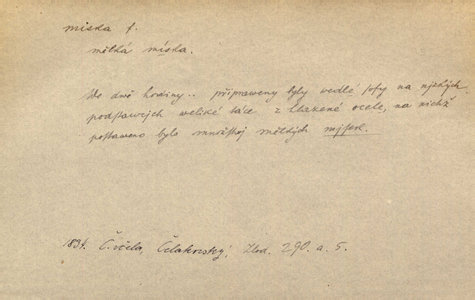 miska f.
mělká miska.
Do dně hodiny.. připraweny byly wedlé sofy na njzkých
podstawcjch weliké táce z hlazené ocele, na nichž
postaweno bylo množstwj mělkých mjsek.
1834. Č. včela, Čelakovský, Zlod. 290. a. 5.